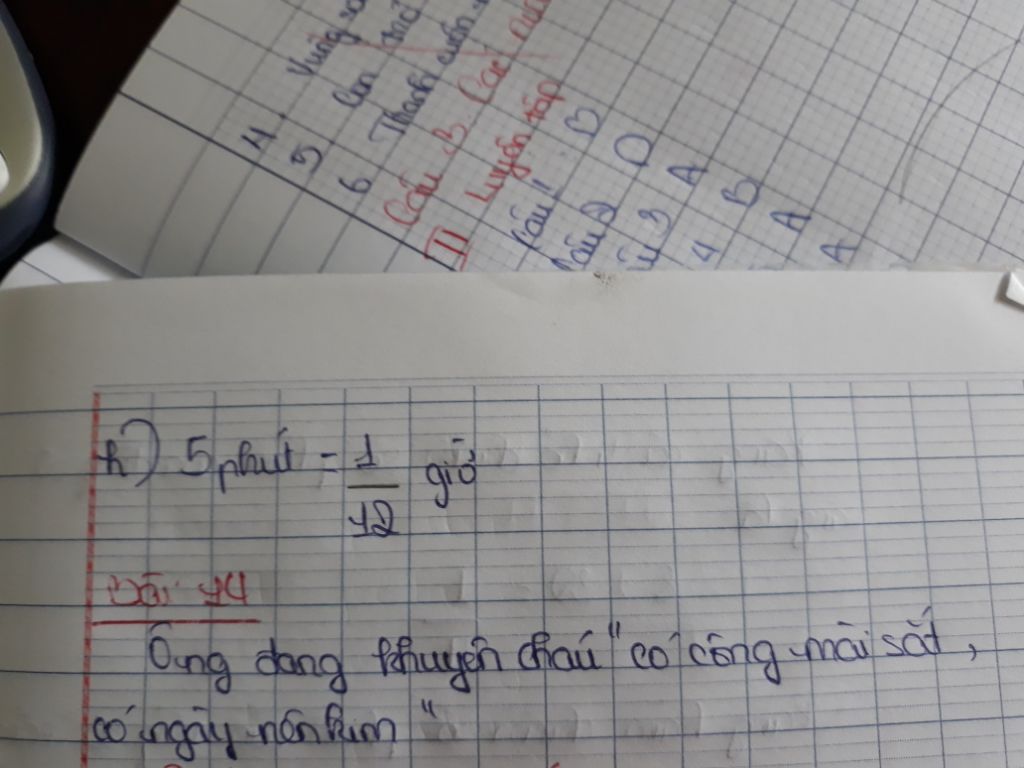 4. Vùng
5
6 Thành
Câu 3. Các
II Luyện tập
Câu 1 D
Câu 2 D
Câu 3 A
4 B
A
A
h) 5 phút = 1/12 giờ
Bài 14
Ông đang khuyên cháu "có công mài sắt,
có ngày nên kim"